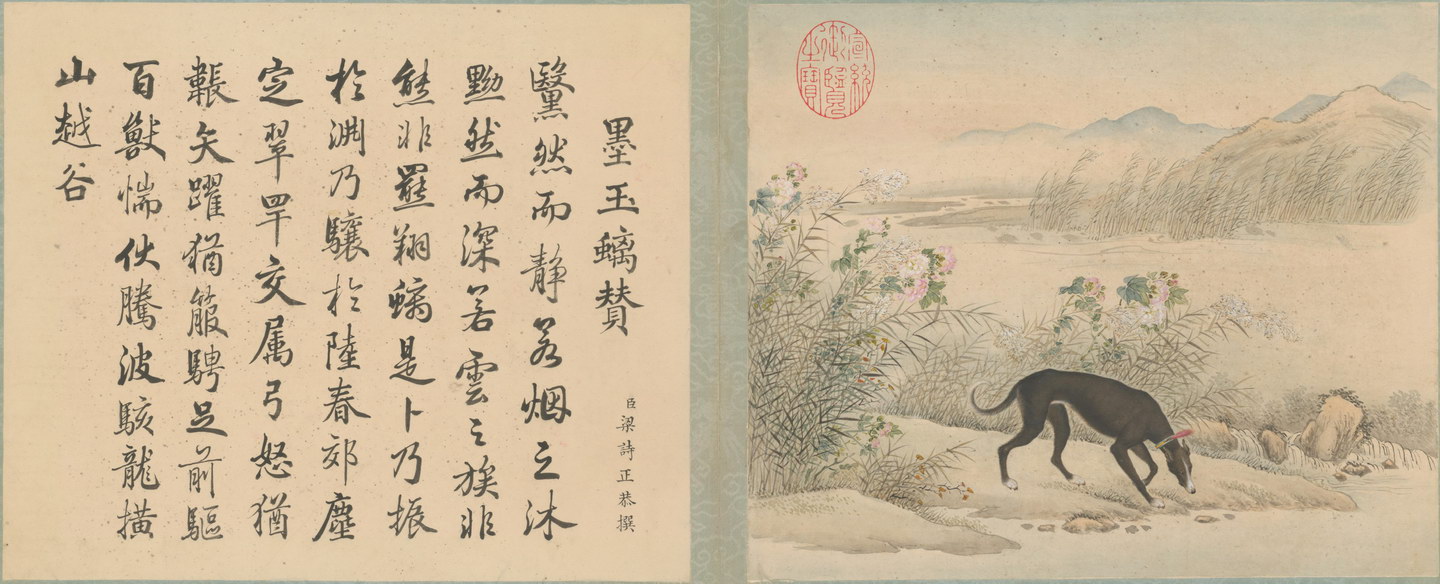 墨玉螭賛
臣梁詩正恭撰
黳然而静若烟之沐
黝然而深若雲之族非
熊非羆翔螭是卜乃振
於淵乃驤於陸春郊塵
定翠罕交属弓怒猶
韔矢躍猶箙騁足前驅
百獸惴伏騰波駭龍横
山越谷
宣統
御覽
之寶